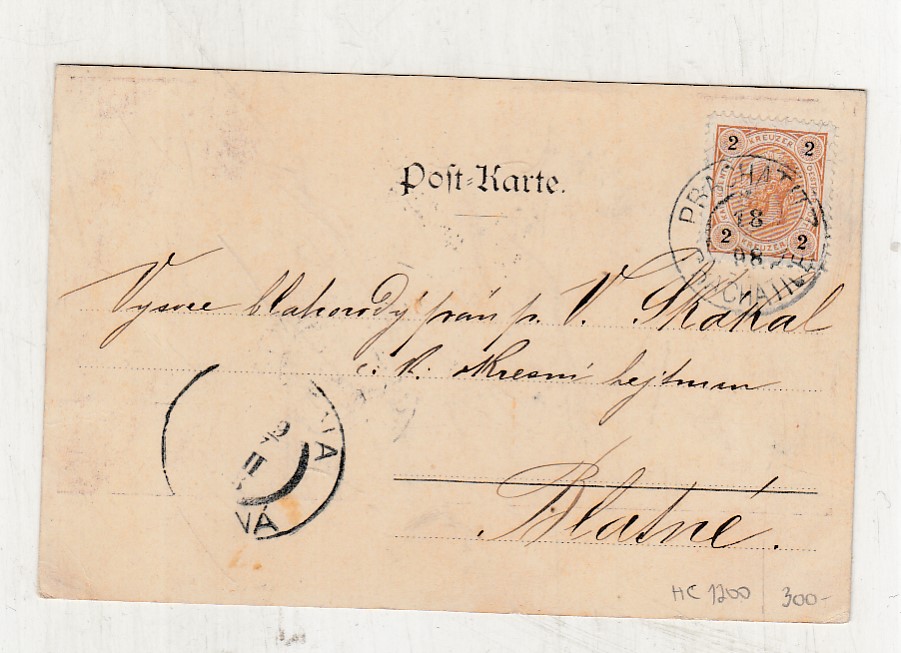 2 KREUZER 2
2 KREUZER 2
PRACHATITZ
18
98
PRACHATICE
Post-Karte.
Vysoce blahorodý pán p. V. Skákal
c. k. okresní hejtman
Blatné.
NÁ
HC 1200 300-